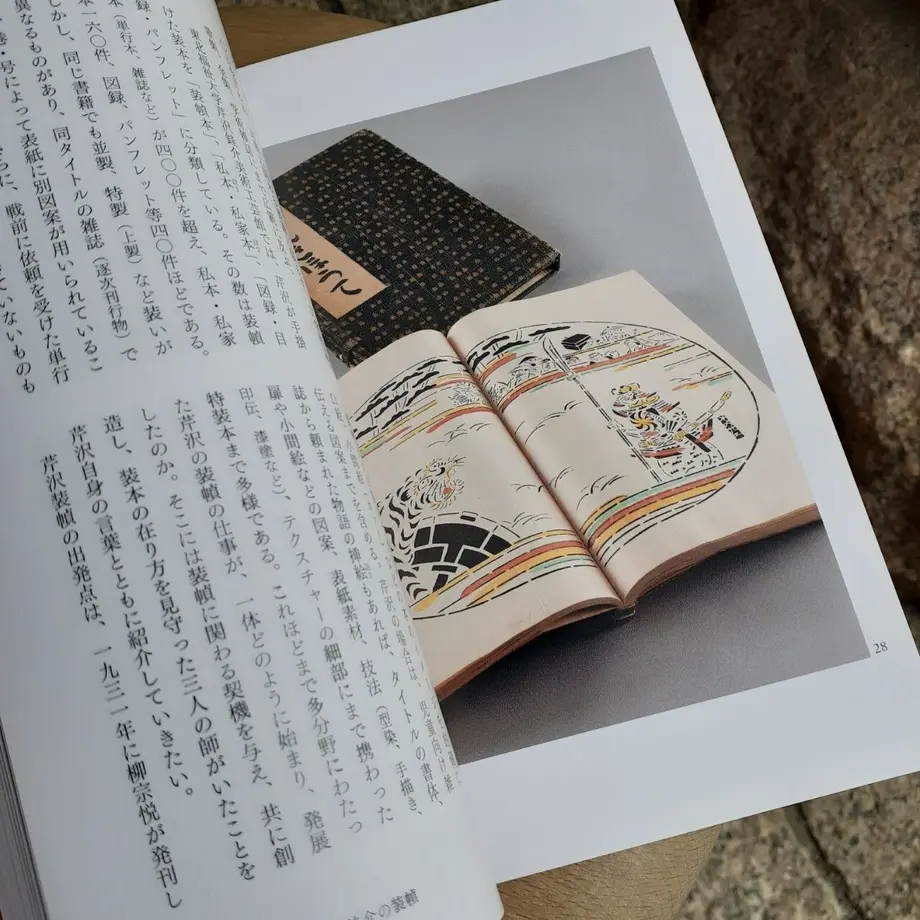 東北福祉大学芹沢銈介美術工芸館では、芹沢が手掛
けた装本を「装幀本」、「私本・私家本」、「図録・目
録・パンフレット」に分類している。その数は装幀
本（単行本、雑誌など）が四〇〇件を超え、私本・私家
本一六〇件、図録、パンフレット等四〇件ほどである。
しかし、同じ書籍でも並製、特製（上製）など装いが
異なるものがあり、同タイトルの雑誌（逐次刊行物）で
巻・号によって表紙に別図案が用いられているこ
さらに、戦前に依頼を受けた単行
ていないものも
伝える図案までを含める。芹沢の場合は、児童向け雑
誌から頼まれた物語の挿絵もあれば、タイトルの書体、
扉や小間絵などの図案、表紙素材、技法（型染、手描き、
印伝、漆塗など）、テクスチャーの細部にまで携わった
特装本まで多様である。これほどまで多分野にわたっ
た芹沢の装幀の仕事が、一体どのように始まり、発展
したのか。そこには装幀に関わる契機を与え、共に創
造し、装本の在り方を見守った三人の師がいたことを
芹沢自身の言葉とともに紹介していきたい。
芹沢装幀の出発点は、一九三一年に柳宗悦が発刊し
介の装幀
28